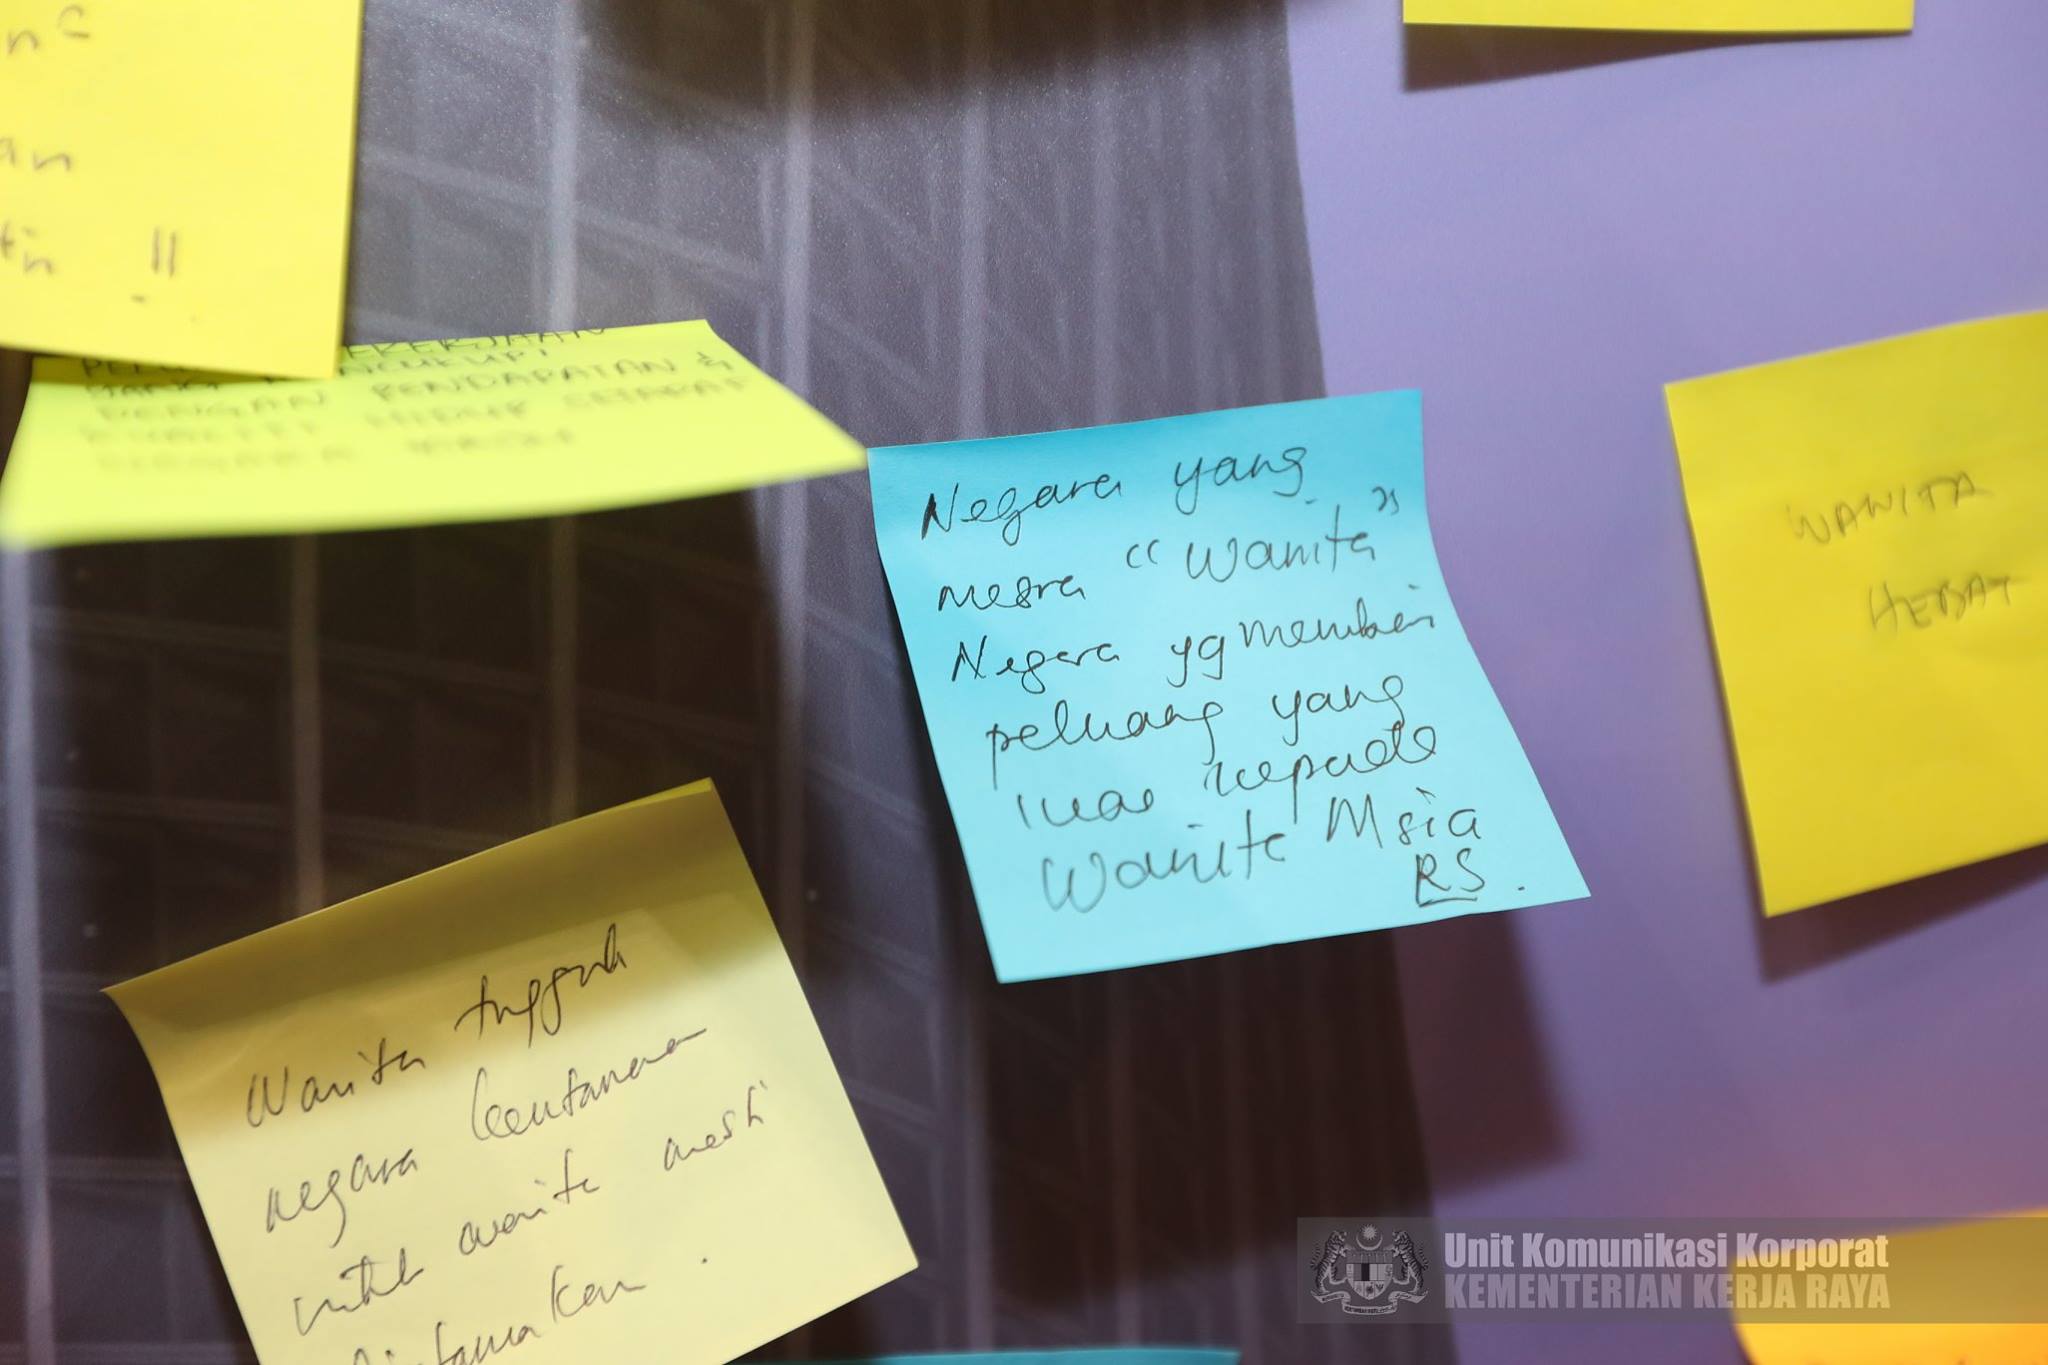 an
!!
DENGAN PENDAPATAN &
HIDUP SETARAF
Negara yang
mesra "Wanita"
Negara yg memberi
peluang yang
luas kepada
Wanita Msia
RS.
WANITA
HEBAT
Wanita tunggak
negara keutamaan
untuk wanita mesti
diutamakan.
Unit Komunikasi Korporat
KEMENTERIAN KERJA RAYA